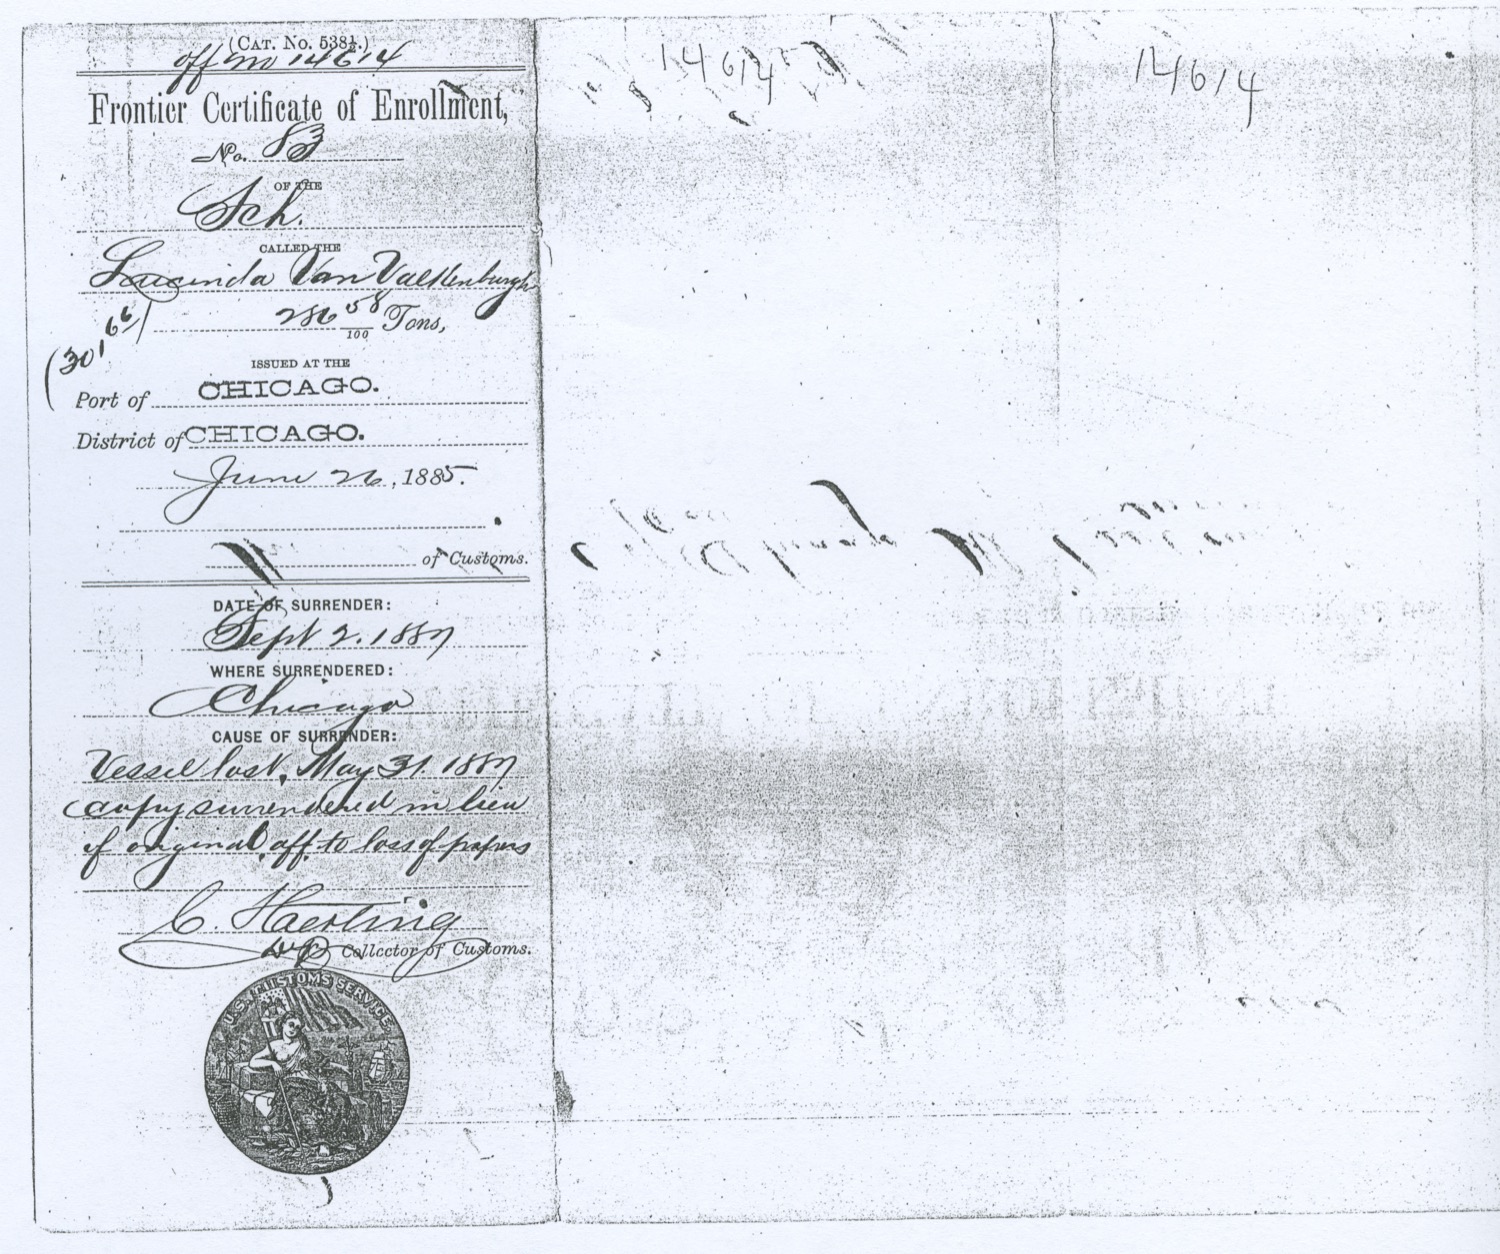 (CAT. No. 538½.)
off no 14614
Frontier Certificate of Enrollment,
No. 83
OF THE
Sch.
CALLED THE
Lucinda Van Valkenburgh
286 58/100 Tons,
(301 66/)
ISSUED AT THE
Port of CHICAGO.
District of CHICAGO.
June 26, 1885.
of Customs.
DATE OF SURRENDER:
Sept 2. 1887
WHERE SURRENDERED:
Chicago
CAUSE OF SURRENDER:
Vessel lost, May 31. 1887
copy surrendered in lieu
of original, aff. to loss of papers
C. Haerting
Collector of Customs.
U.S. CUSTOMS SERVICE
14614
14614